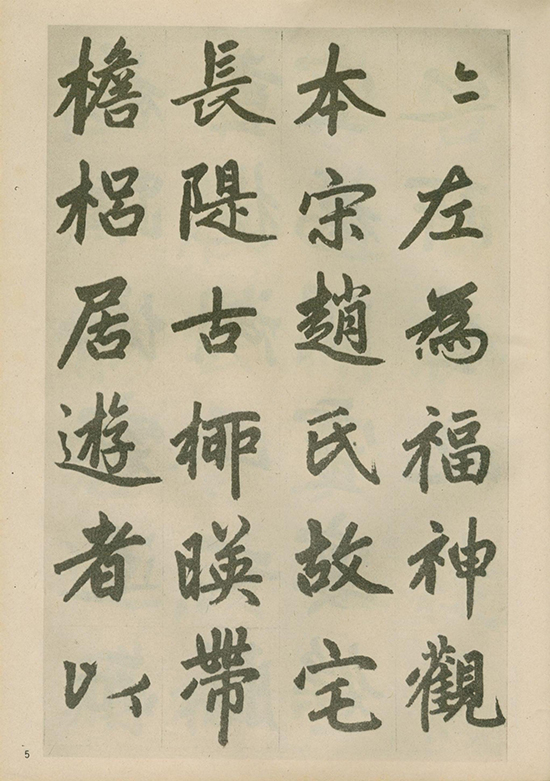 〻左為福神觀
本宋趙氏故宅
長隄古桺暎帶
檐梠居遊者以
5